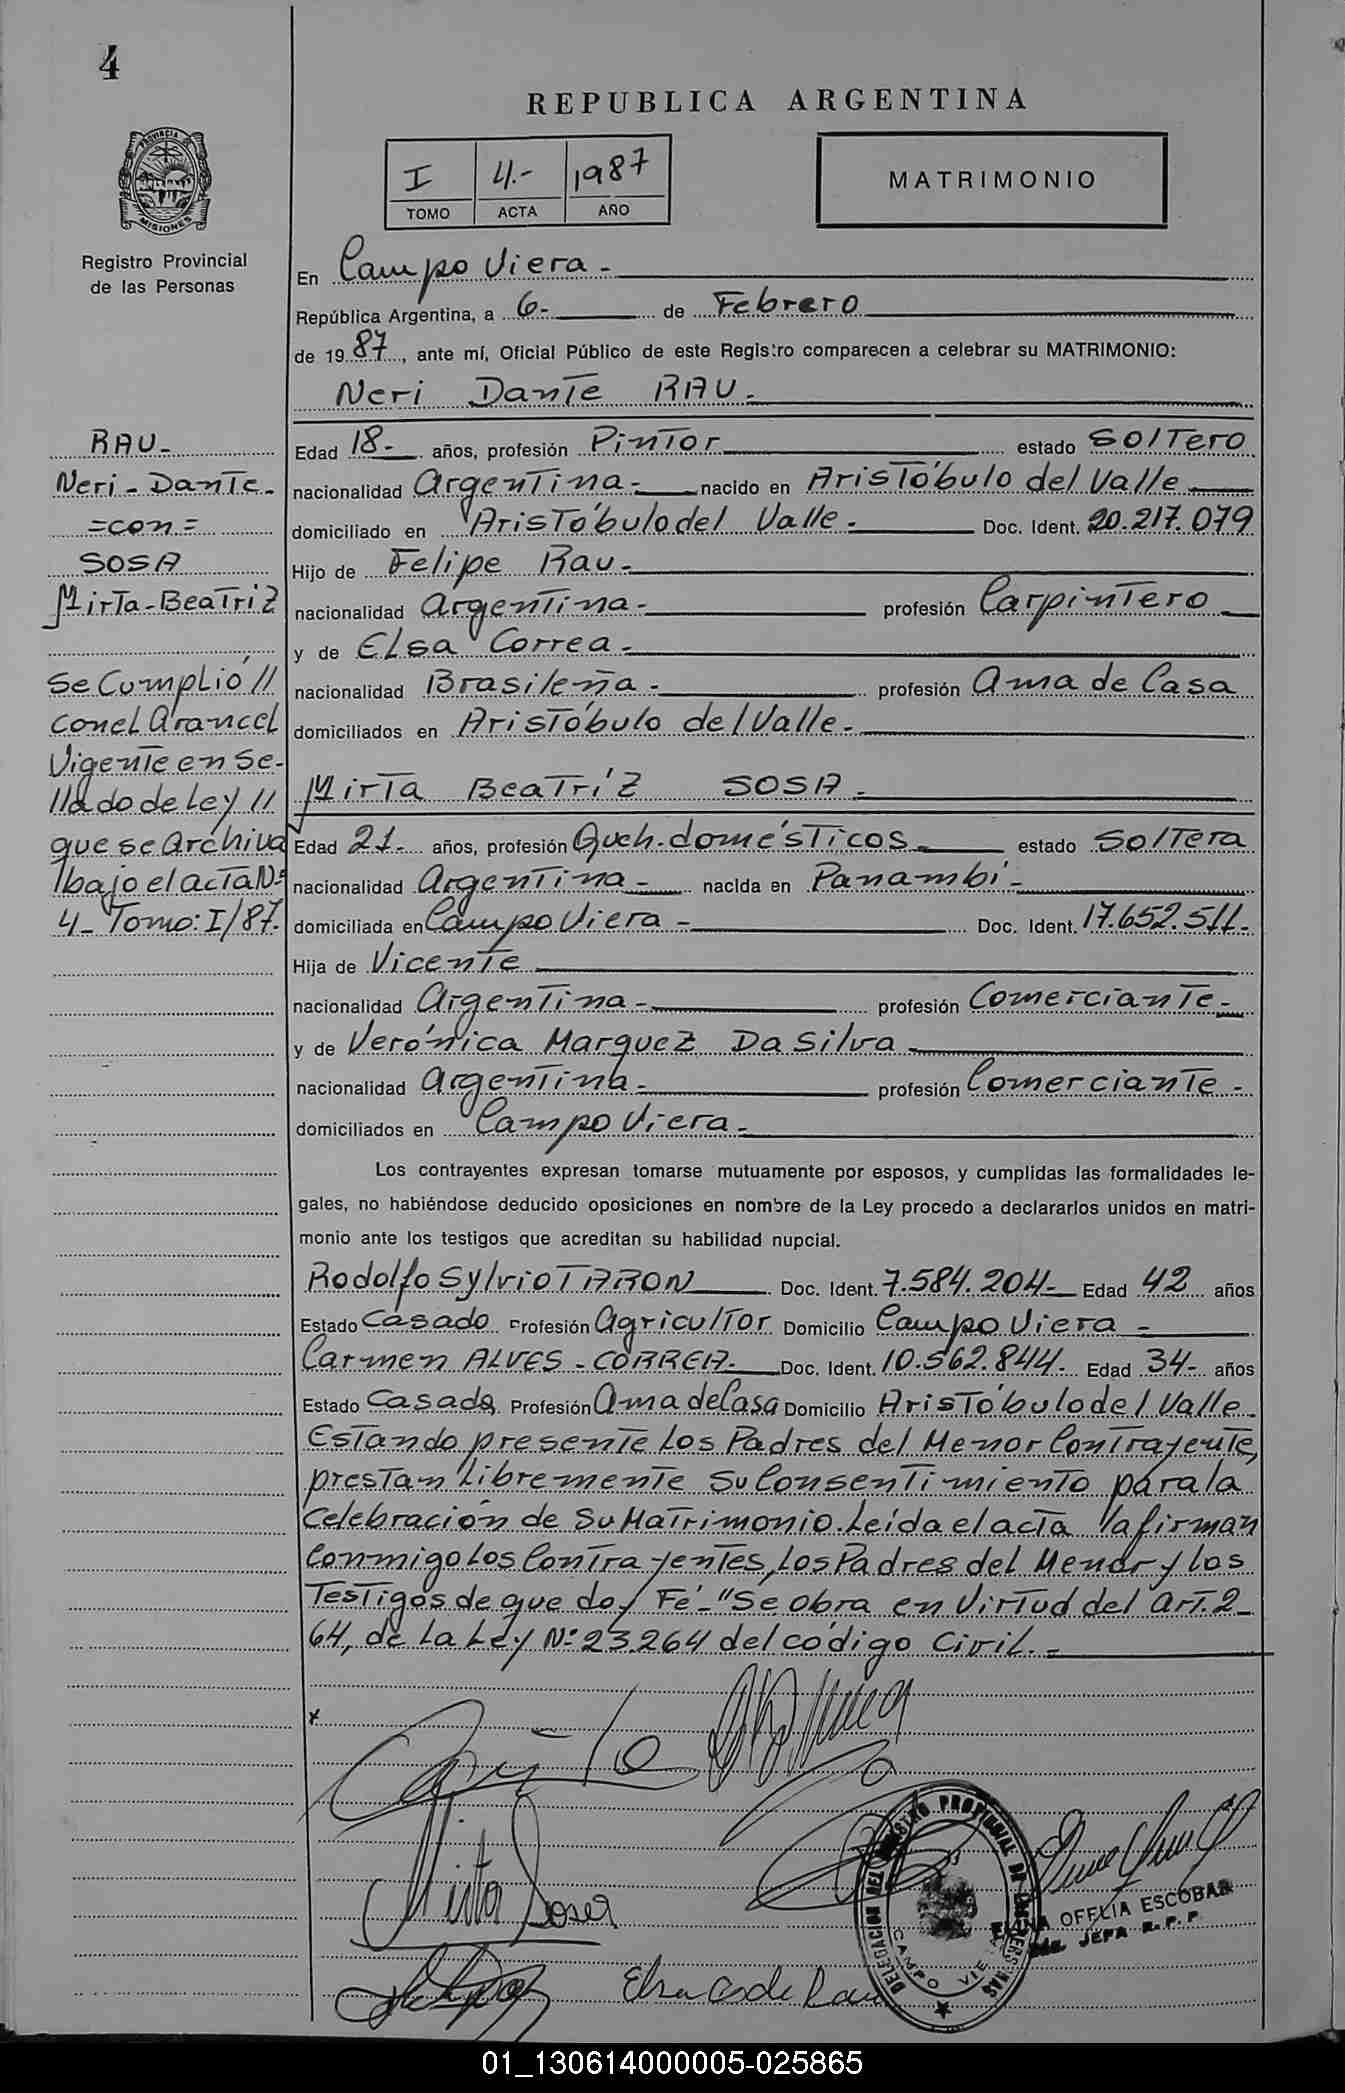 4
REPUBLICA ARGENTINA
PROVINCIA
MISIONES
I 4.- 1987
TOMO ACTA AÑO
MATRIMONIO
Registro Provincial
de las Personas
En Campo Viera -
República Argentina, a 6- de Febrero
de 1987, ante mí, Oficial Público de este Registro comparecen a celebrar su MATRIMONIO:
Neri Dante RAU-
RAU-
Neri - Dante-
=con=
SOSA
Mirta-Beatriz
Se Cumplió //
con el Arancel
Vigente en Se-
llado de Ley //
que se Archiva
bajo el acta Nº
4- Tomo: I/87.
Edad 18- años, profesión Pintor estado Soltero
nacionalidad Argentina- nacido en Aristóbulo del Valle
domiciliado en Aristóbulo del Valle- Doc. Ident. 20.217.079
Hijo de Felipe Rau-
nacionalidad Argentina- profesión Carpintero
y de Elsa Correa-
nacionalidad Brasileña- profesión Ama de Casa
domiciliados en Aristóbulo del Valle-
Mirta Beatríz SOSA-
Edad 21- años, profesión Queh. domésticos- estado Soltera
nacionalidad Argentina- nacida en Panambí-
domiciliada en Campo Viera - Doc. Ident. 17.652.511-
Hija de Vicente
nacionalidad Argentina- profesión Comerciante-
y de Verónica Marquez Da Silva
nacionalidad Argentina- profesión Comerciante-
domiciliados en Campo Viera-
Los contrayentes expresan tomarse mutuamente por esposos, y cumplidas las formalidades le-
gales, no habiéndose deducido oposiciones en nombre de la Ley procedo a declararlos unidos en matri-
monio ante los testigos que acreditan su habilidad nupcial.
Rodolfo Sylvio TARON Doc. Ident. 7.584.204- Edad 42 años
Estado Casado Profesión Agricultor Domicilio Campo Viera -
Carmen ALVES - CORREA- Doc. Ident. 10.562.844- Edad 34- años
Estado Casada Profesión Ama de Casa Domicilio Aristóbulo del Valle-
Estando presente Los Padres del Menor Contrayente,
prestan Libremente Su Consentimiento para la
Celebración de Su Matrimonio. Leída el acta la firman
Conmigo Los Contrayentes, Los Padres del Menor y los
Testigos de que doy Fé-"Se obra en Virtud del Art. 2-
64, de La Ley Nº 23.264 del código Civil.-
Mirta Sosa
Elsa C de Rau
DELEGACION DEL REGISTRO PROVINCIAL DE LAS PERSONAS
CAMPO VIERA
OFELIA ESCOBAR
JEFA R.P.P.
01_130614000005-025865